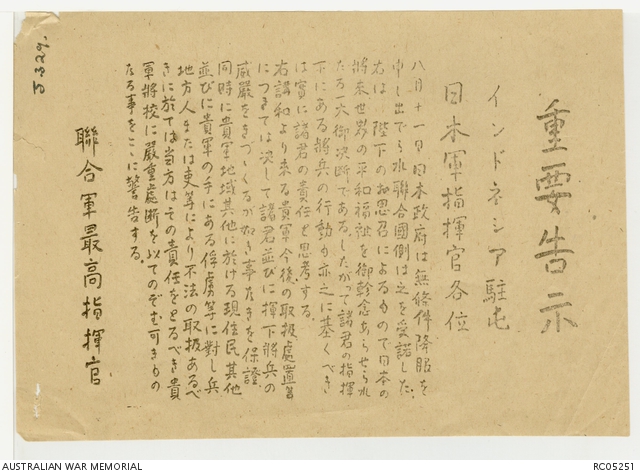 重要告示
インドネシア駐屯
日本軍指揮官各位
八月十一日日本政府は無條件降服を
申し出でられ聯合國側は之を受諾した
右は 陛下のお思召によるもので日本の
將來世界の平和福祉を御軫念あらせられ
たる一大御決断であるしたがって諸君の指揮
下にある將兵の行動も亦之に基くべき
は實に諸君の責任と思考する。
右講和より來る貴軍今後の取扱處置等
につきては決して諸君並びに揮下將兵の
威嚴をきづつくるが如き事なきを保證
同時に貴軍地域其他に於ける現住民其他
並びに貴軍の手にある俘虜等に對し兵
地方人または吏等により不法の取扱あるべ
きに於ては当方はその責任をとるべき貴
軍將校に嚴重處断を以てのぞむ可きもの
なる事をここに警告する。
聯合軍最高指揮官
AUSTRALIAN WAR MEMORIAL
RC05251